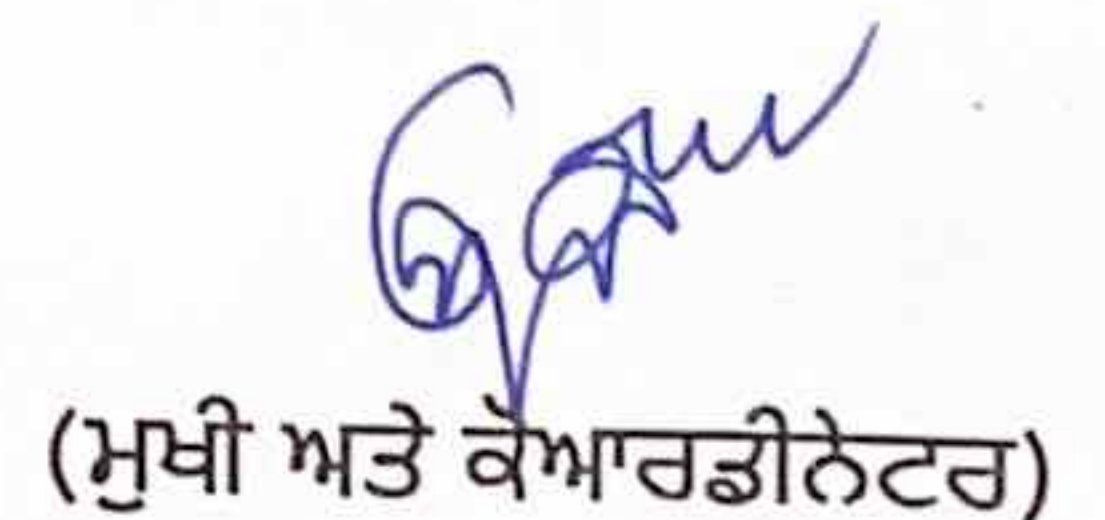 (ਮੁਖੀ ਅਤੇ ਕੋਆਰਡੀਨੇਟਰ)